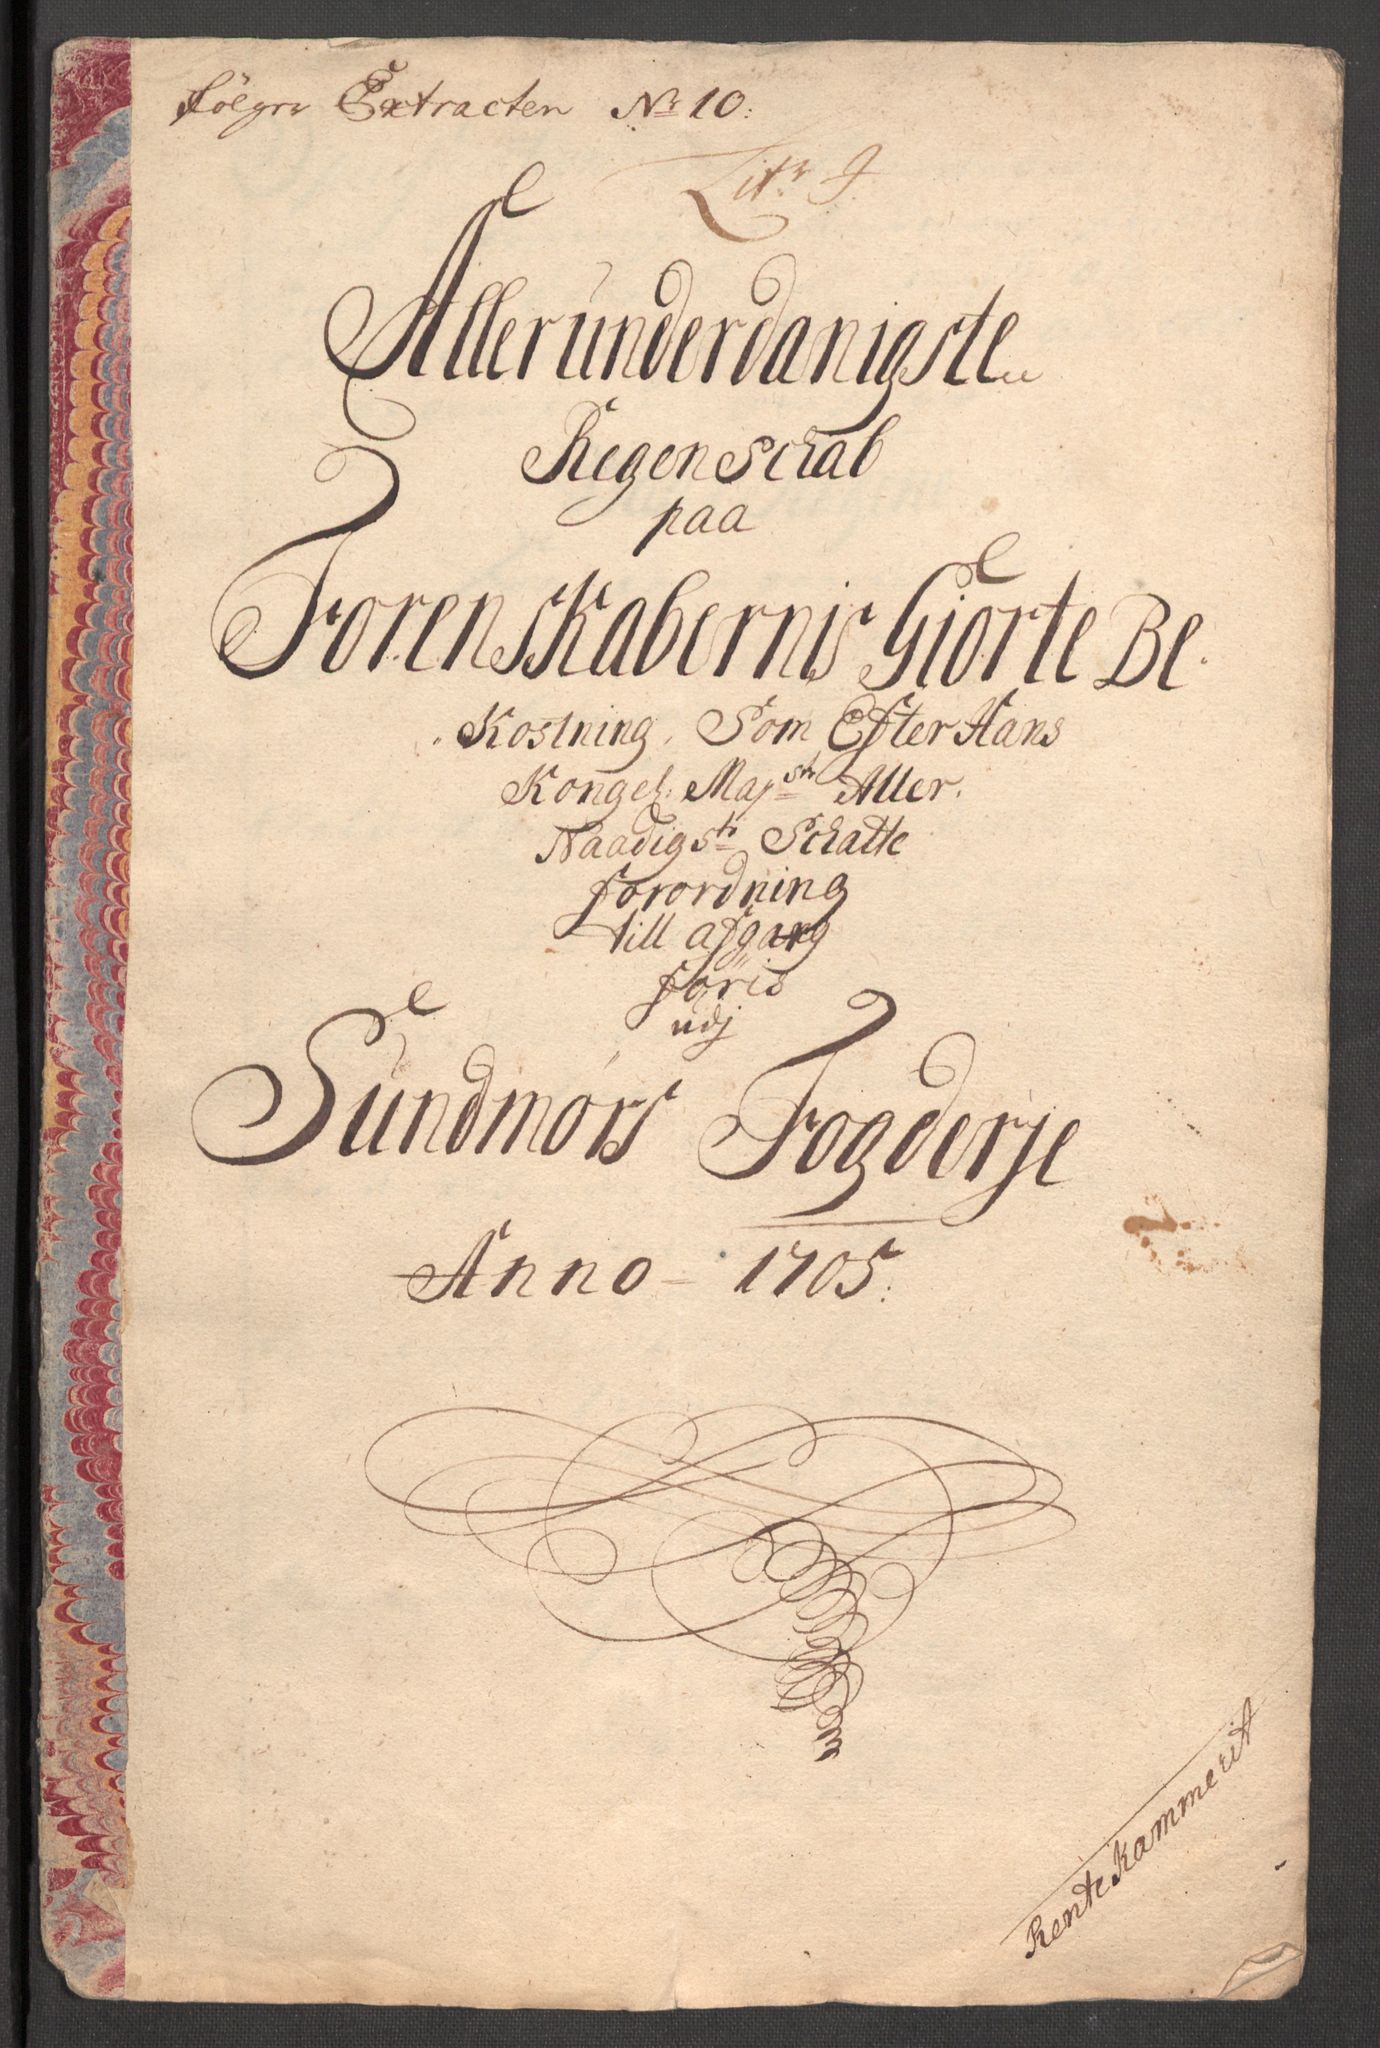 følger Extracten No 10:
Litr J
Allerunderdanigste
Regenschab
paa
Forenskabernis Giorte Be-
Kostning, Som Effter Hans
Kongel: Mayst: Aller-
Naadigste Schatte
forordning
till afgang
føris
udj
Sundmørs Fogderje
Anno - 1705:
Rentekammerit